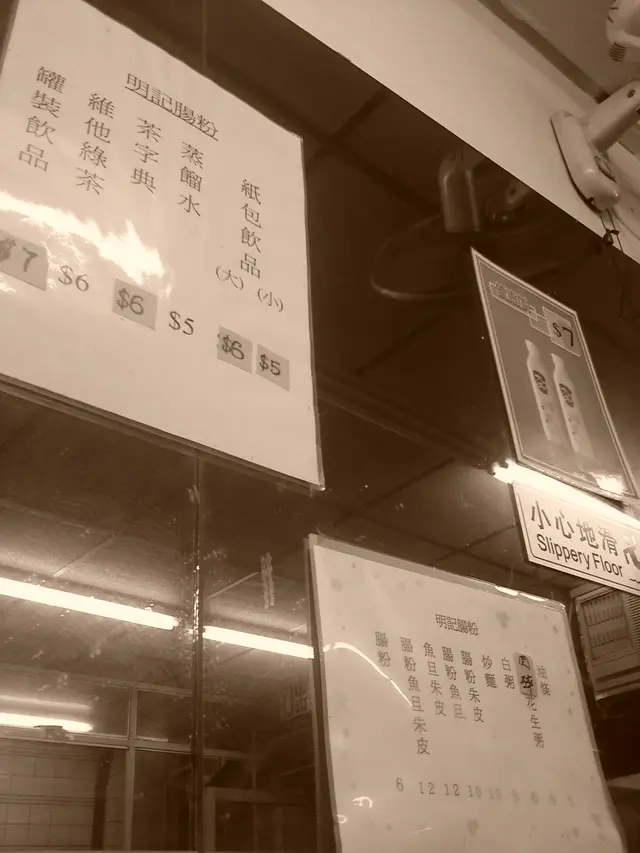 明記腸粉
紙包飲品
(大) (小)
蒸餾水
茶字典
維他綠茶
罐裝飲品
$7 $6 $6 $5 $6 $5
$7
小心地滑
Slippery Floor
明記腸粉
油條
花生粥
白粥
炒麵
腸粉朱皮
腸粉魚旦
魚旦朱皮
腸粉魚旦朱皮
腸粉
6 12 12 10